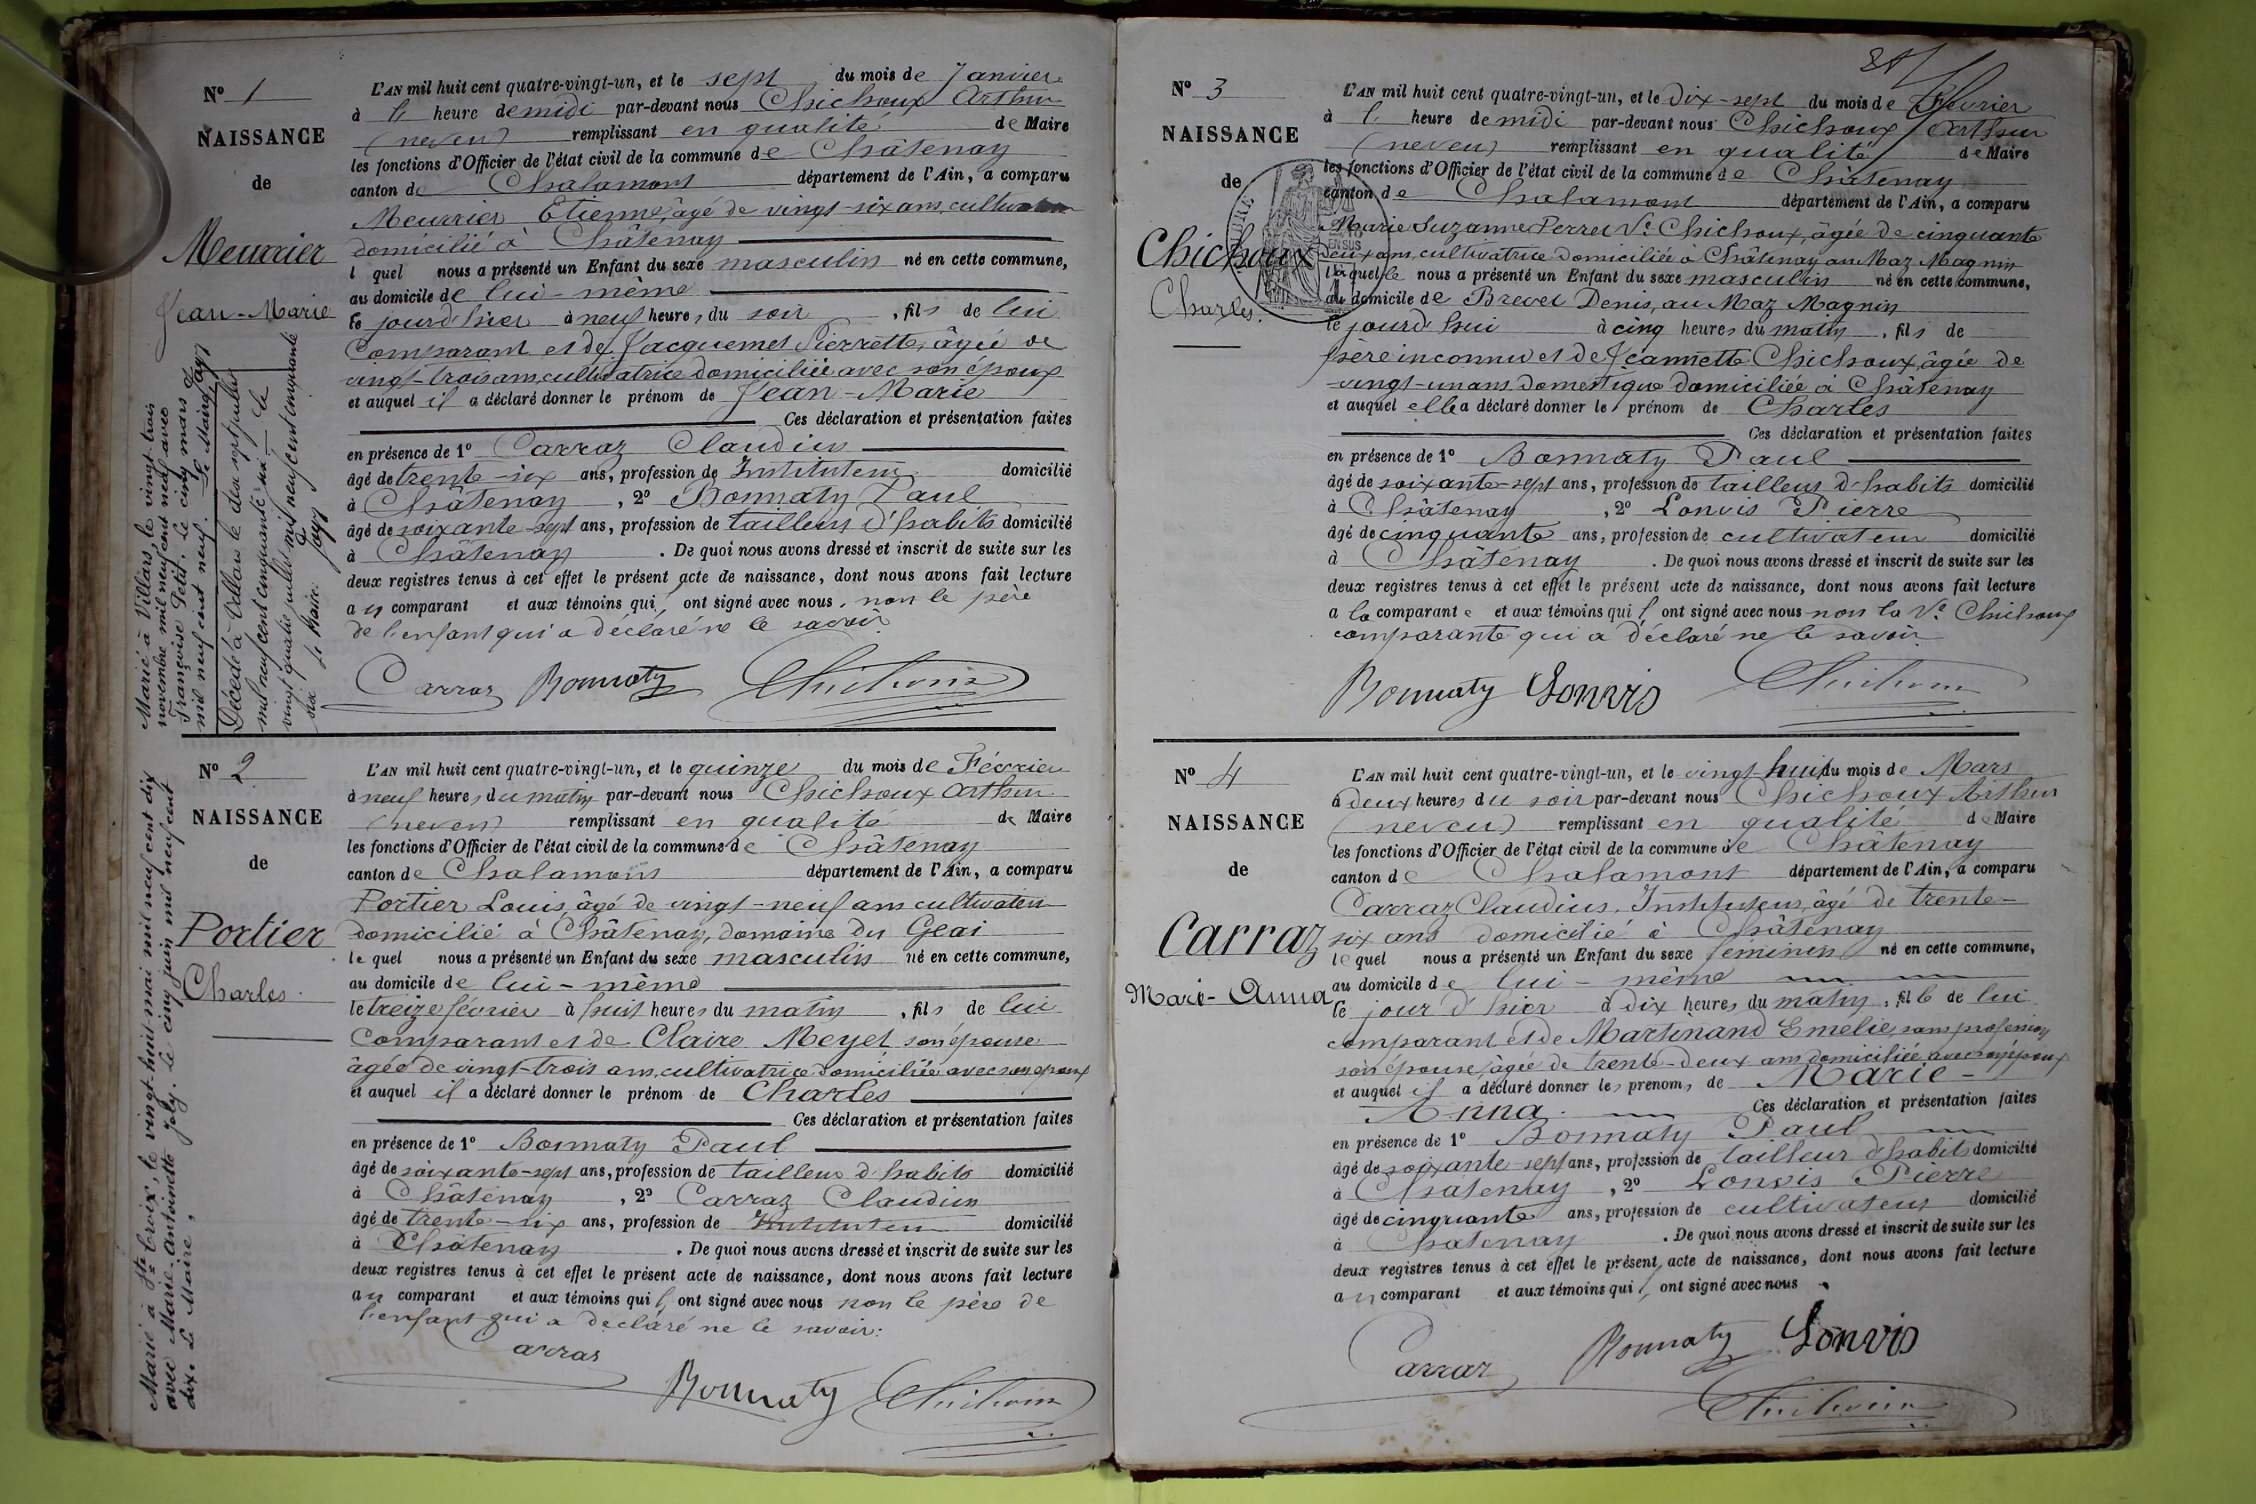 N° 1
NAISSANCE
de
Meurrier
Jean-Marie
Marié à Villars, le vingt-trois
novembre mil neuf cent neuf avec
Françoise Petit. Le cinq mars
mil neuf cent neuf. Le Maire,
Décédé à Villars le
mil neuf cent cinquante six Le
vingt quatre juillet mil neuf cent cinquante
six Le Maire:
L'AN mil huit cent quatre-vingt-un, et le sept du mois de Janvier
à 1 heure de midi par-devant nous Chichoux Arthur
(neveu) remplissant en qualité de Maire
les fonctions d'Officier de l'état civil de la commune de Châtenay
canton de Chalamont département de l'Ain, a comparu
Meurrier Etienne, âgé de vingt-six ans, cultivateur
domicilié à Châtenay
lequel nous a présenté un Enfant du sexe masculin né en cette commune,
au domicile de lui-même
le jourd'hier à neuf heures du soir, fils de lui
comparant et de Jacquemet Pierrette, âgée de
vingt-trois ans, cultivatrice domiciliée avec son époux
et auquel il a déclaré donner le prénom de Jean-Marie
Ces déclaration et présentation faites
en présence de 1° Carraz Claudius
âgé de trente-six ans, profession de Instituteur domicilié
à Châtenay, 2° Bonnaty Paul
âgé de soixante-sept ans, profession de tailleur d'habits domicilié
à Châtenay. De quoi nous avons dressé et inscrit de suite sur les
deux registres tenus à cet effet le présent acte de naissance, dont nous avons fait lecture
au comparant et aux témoins qui ont signé avec nous, non le père
de l'enfant qui a déclaré ne le savoir
Carraz Bonnaty Chichoux
N° 2
NAISSANCE
de
Portier
Charles
Marié à Ste Croix, le vingt-huit mai mil neuf cent dix
avec Marie Antoinette Joly. Le cinq juin mil neuf cent
dix. Le Maire,
L'AN mil huit cent quatre-vingt-un, et le quinze du mois de Février
à neuf heures du matin par-devant nous Chichoux Arthur
(neveu) remplissant en qualité de Maire
les fonctions d'Officier de l'état civil de la commune de Châtenay
canton de Chalamont département de l'Ain, a comparu
Portier Louis, âgé de vingt-neuf ans cultivateur
domicilié à Châtenay, domaine du Geai
lequel nous a présenté un Enfant du sexe masculin né en cette commune,
au domicile de lui-même
le treize février à huit heures du matin, fils de lui
comparant et de Claire Meyet son épouse
âgée de vingt-trois ans, cultivatrice domiciliée avec son époux
et auquel il a déclaré donner le prénom de Charles
Ces déclaration et présentation faites
en présence de 1° Bonnaty Paul
âgé de soixante-sept ans, profession de tailleur d'habits domicilié
à Châtenay, 2° Carraz Claudius
âgé de trente-six ans, profession de Instituteur domicilié
à Châtenay. De quoi nous avons dressé et inscrit de suite sur les
deux registres tenus à cet effet le présent acte de naissance, dont nous avons fait lecture
au comparant et aux témoins qui ont signé avec nous non le père de
l'enfant qui a déclaré ne le savoir:
Carraz
Bonnaty Chichoux
N° 3
NAISSANCE
de
Chichoux
Charles.
L'AN mil huit cent quatre-vingt-un, et le dix-sept du mois de Février
à 1 heure de midi par-devant nous Chichoux Arthur
(neveu) remplissant en qualité de Maire
les fonctions d'Officier de l'état civil de la commune de Châtenay
canton de Chalamont département de l'Ain, a comparu
Marie Suzanne Perret Ve Chichoux, âgée de cinquante
deux ans, cultivatrice domiciliée à Châtenay au Maz Magnin
laquelle nous a présenté un Enfant du sexe masculin né en cette commune,
au domicile de Brevet Denis, au Maz Magnin
le jourd'hui à cinq heures du matin, fils de
père inconnu et de Jeannette Chichoux, âgée de
vingt-un ans domestique domiciliée à Châtenay
et auquel elle a déclaré donner le prénom de Charles
Ces déclaration et présentation faites
en présence de 1° Bonnaty Paul
âgé de soixante-sept ans, profession de tailleur d'habits domicilié
à Châtenay, 2° Lonvis Pierre
âgé de cinquante ans, profession de cultivateur domicilié
à Châtenay. De quoi nous avons dressé et inscrit de suite sur les
deux registres tenus à cet effet le présent acte de naissance, dont nous avons fait lecture
a la comparante et aux témoins qui ont signé avec nous non la Ve Chichoux
comparante qui a déclaré ne le savoir
Bonnaty Lonvis Chichoux
N° 4
NAISSANCE
de
Carraz
Marie-Anna
L'AN mil huit cent quatre-vingt-un, et le vingt-huit du mois de Mars
à deux heures du soir par-devant nous Chichoux Arthur
(neveu) remplissant en qualité de Maire
les fonctions d'Officier de l'état civil de la commune de Châtenay
canton de Chalamont département de l'Ain, a comparu
Carraz Claudius, Instituteur, âgé de trente-
six ans domicilié à Châtenay
lequel nous a présenté un Enfant du sexe féminin né en cette commune,
au domicile de lui-même
le jour d'hier à dix heures du matin, fille de lui
comparant et de Martinand Emelie, sans profession
son épouse, âgée de trente-deux ans domiciliée avec son époux
et auquel il a déclaré donner les prénoms de Marie-
Anna. Ces déclaration et présentation faites
en présence de 1° Bonnaty Paul
âgé de soixante-sept ans, profession de tailleur d'habits domicilié
à Châtenay, 2° Lonvis Pierre
âgé de cinquante ans, profession de cultivateur domicilié
à Chatenay. De quoi nous avons dressé et inscrit de suite sur les
deux registres tenus à cet effet le présent acte de naissance, dont nous avons fait lecture
au comparant et aux témoins qui ont signé avec nous
Carraz Bonnaty Lonvis
Chichoux